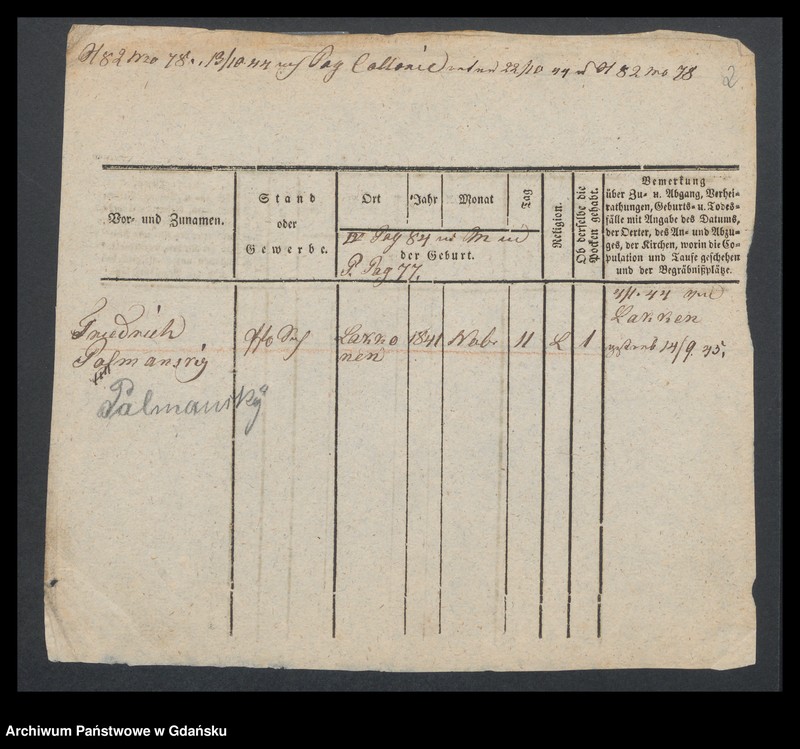 82 No 78. 13/10 44 Pag Collonie 22/10 44 82 No 78
2
Vor- und Zunamen.
Stand
oder
Gewerbe.
Ort Jahr Monat Tag
Pag 84
der Geburt.
P. Pag 77.
Religion.
Ob derselbe die
Pocken gehabt.
Bemerkung
über Zu- u. Abgang, Verhei-
rathungen, Geburts- u. Todes-
fälle mit Angabe des Datums,
der Oerter, des An- und Abzu-
ges, der Kirchen, worin die Co-
pulation und Taufe geschehen
und der Begräbnißplätze.
Friedrich
Palmansky
Lakko
nen
1841 Nobr 11 L 1
4/1. 44
Lakken
14/9. 45.
Palmansky
Archiwum Państwowe w Gdańsku